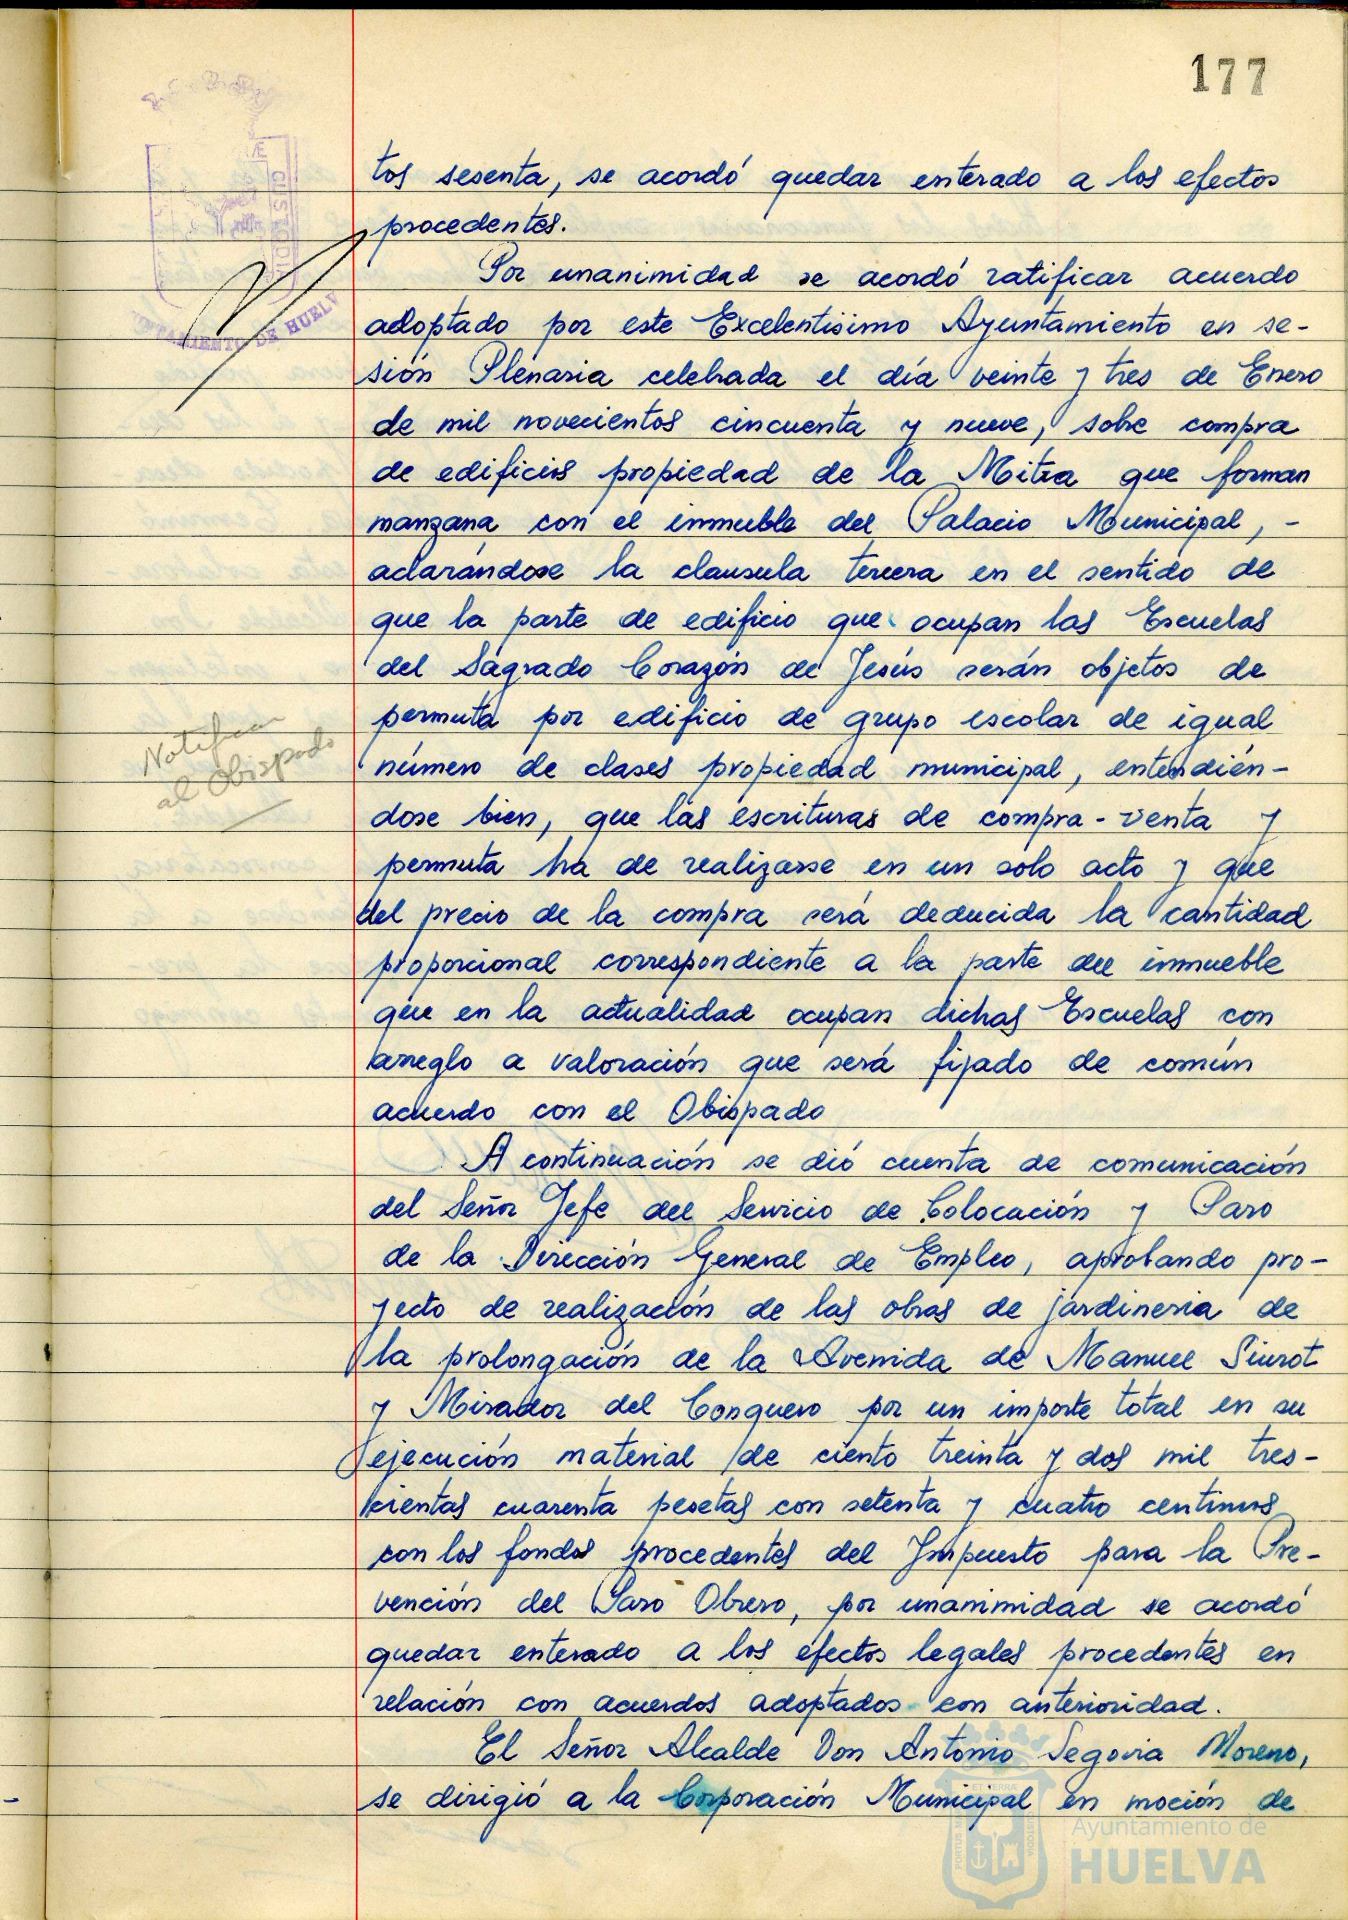 177
tos sesenta, se acordó quedar enterado a los efectos
procedentes.
Por unanimidad se acordó ratificar acuerdo
adoptado por este Excelentisimo Ayuntamiento en se-
sión Plenaria celebrada el día veinte y tres de Enero
de mil novecientos cincuenta y nueve, sobre compra
de edificios propiedad de la Mitra que forman
manzana con el inmueble del Palacio Municipal, -
aclarándose la clausula tercera en el sentido de
que la parte de edificio que ocupan las Escuelas
del Sagrado Corazón de Jesús serán objetos de
permuta por edificio de grupo escolar de igual
número de clases propiedad municipal, entendién-
dose bien, que las escrituras de compra-venta y
permuta ha de realizarse en un solo acto y que
del precio de la compra será deducida la cantidad
proporcional correspondiente a la parte del inmueble
que en la actualidad ocupan dichas Escuelas con
arreglo a valoración que será fijado de común
acuerdo con el Obispado
A continuación se dió cuenta de comunicación
del Señor Jefe del Servicio de Colocación y Paro
de la Dirección General de Empleo, aprobando pro-
yecto de realización de las obras de jardineria de
la prolongación de la Avenida de Manuel Siurot
y Mirador del Conquero por un importe total en su
ejecución material de ciento treinta y dos mil tres-
cientas cuarenta pesetas con setenta y cuatro centimos
con los fondos procedentes del Impuesto para la Pre-
vención del Paro Obrero, por unanimidad se acordó
quedar enterado a los efectos legales procedentes en
relación con acuerdos adoptados con anterioridad.
El Señor Alcalde Don Antonio Segovia Moreno,
se dirigió a la Corporación Municipal en moción de
Notificar
al Obispado
CUSTODI
DE HUELV
Ayuntamiento de
HUELVA